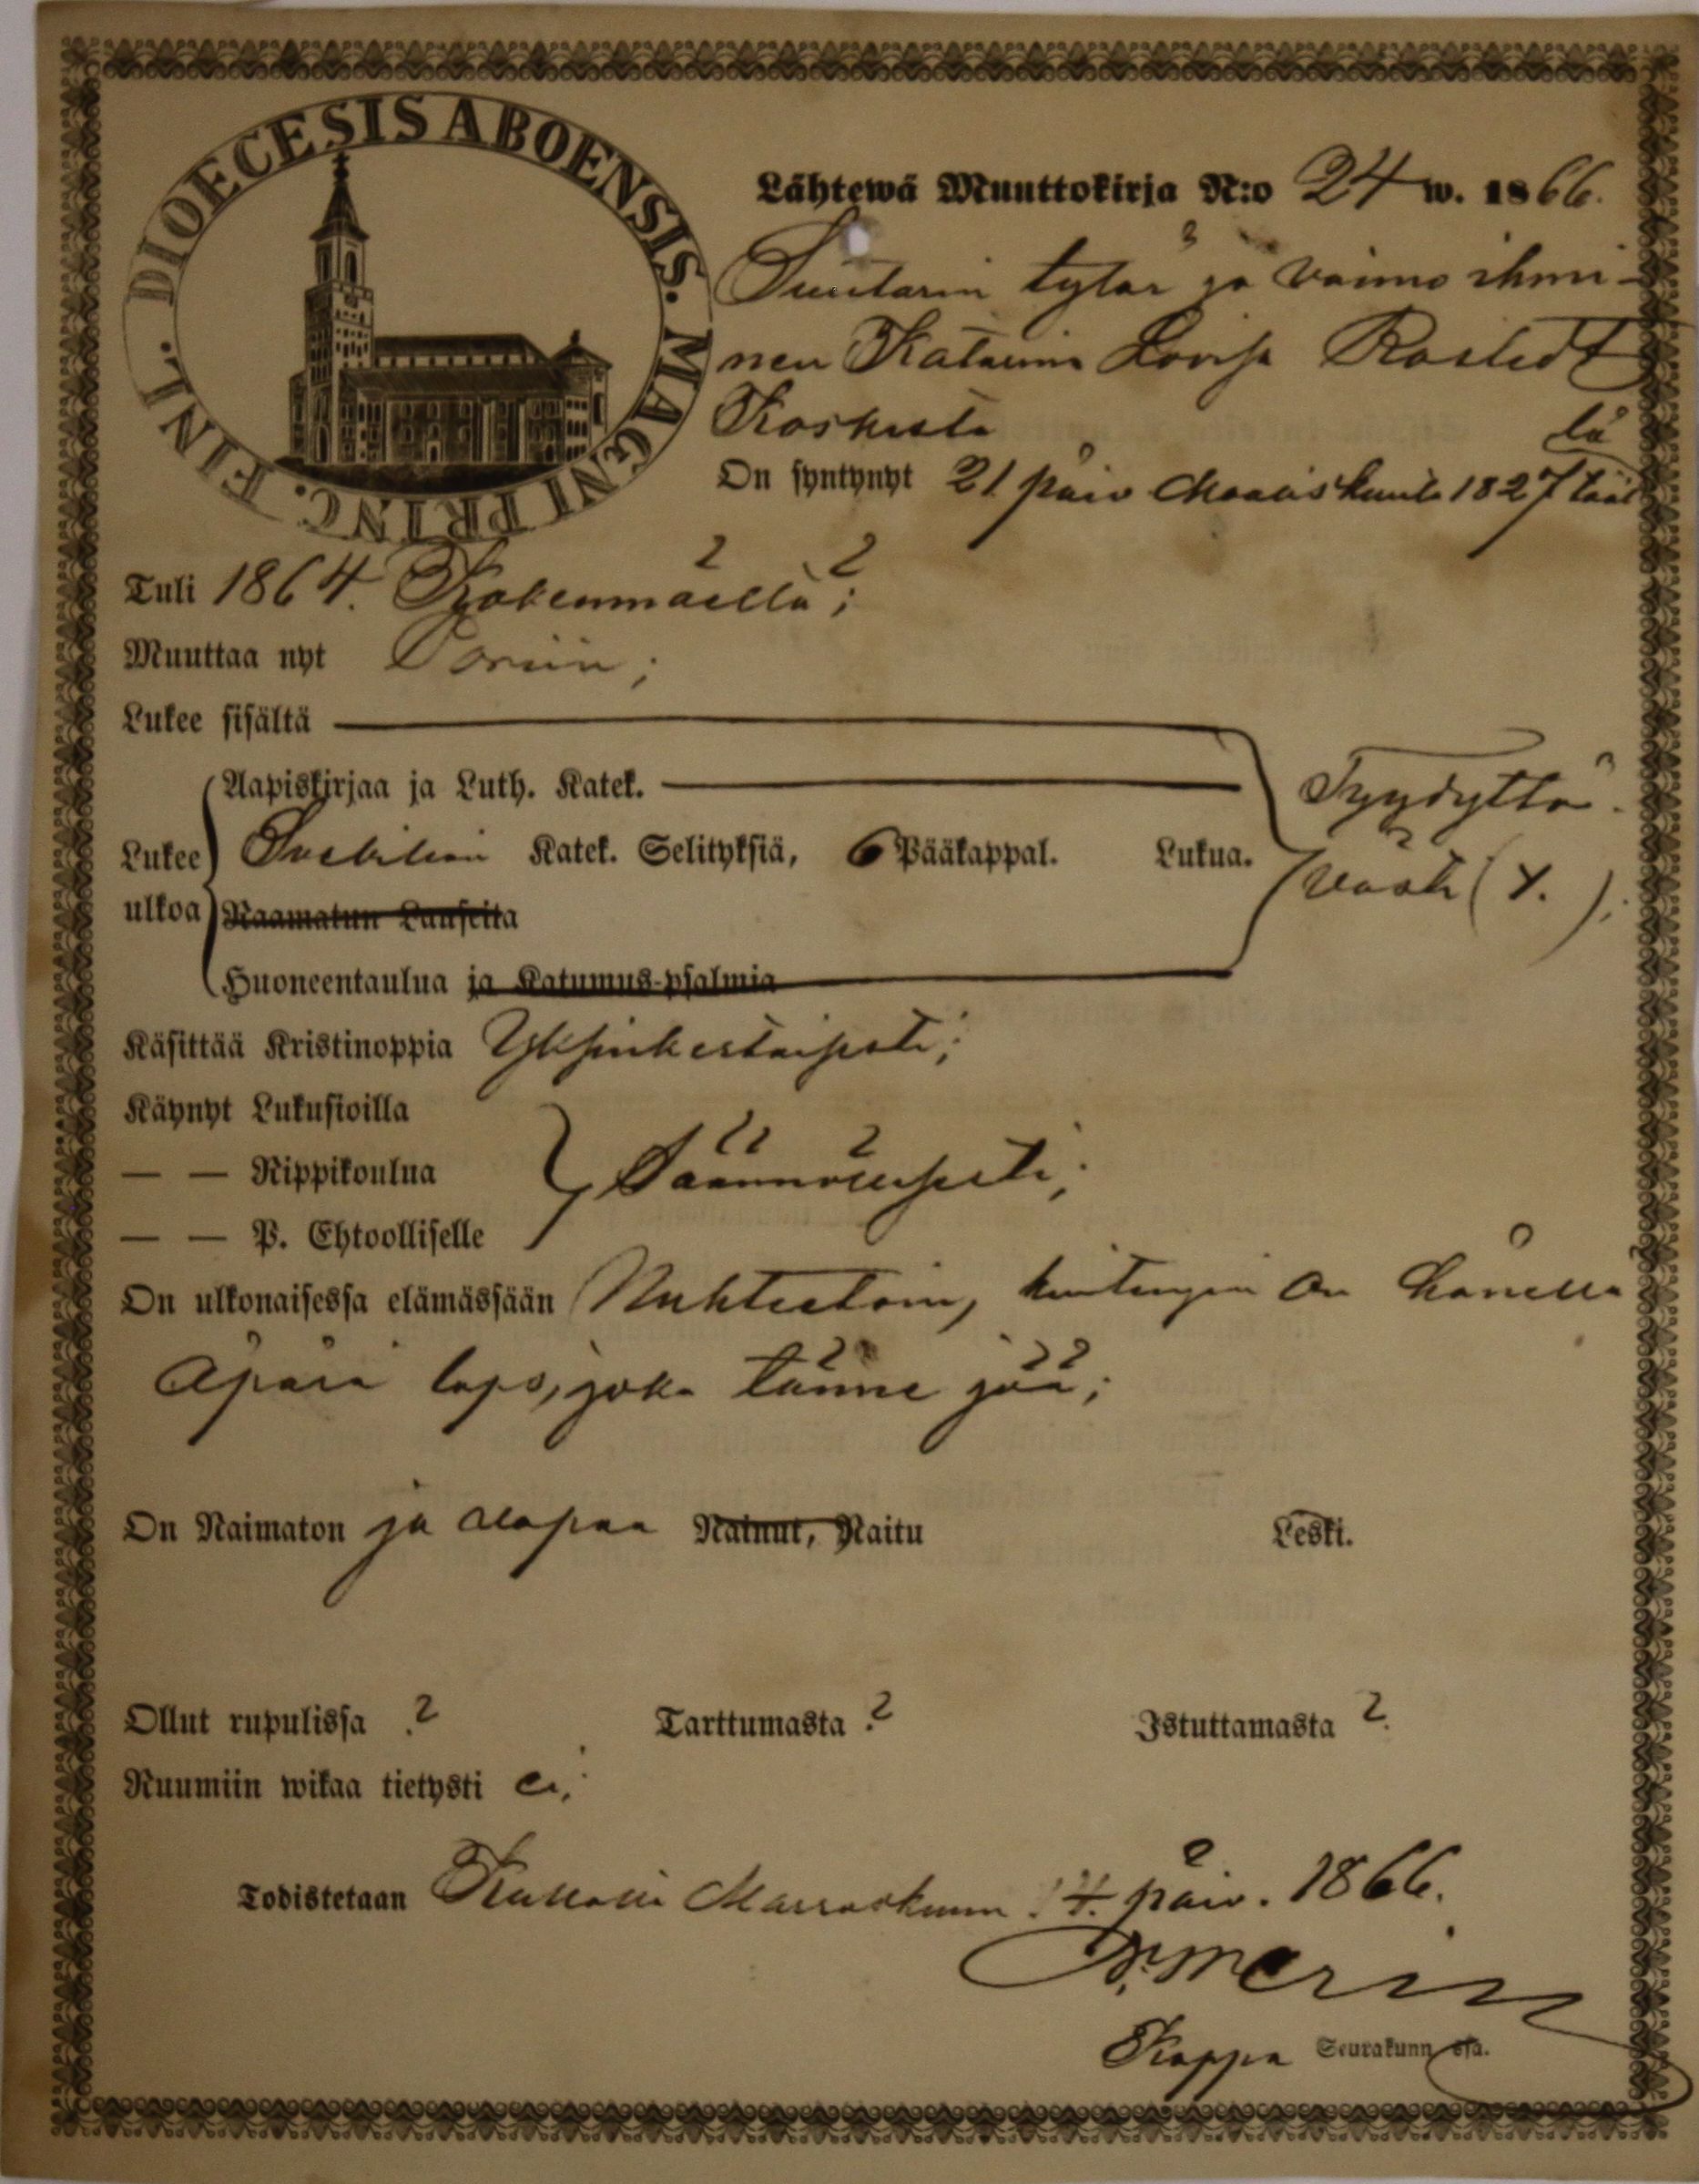 DIOECESIS ABOENSIS. MAGNI PRINC. FINL.
Lähtewä Muuttokirja N:o 24 w. 1866.
Suutarin tytär ja vaimo ihmi-
nen Katarina Lovisa Rostedt
Koskesta
On syntynyt 21 päiv Maaliskuuta 1827 tääl
lä
Tuli 1864. Kokemmäeltä;
Muuttaa nyt Poriin;
Lukee sisältä
Aapiskirjaa ja Luth. Katek. Tyydyttä
Lukee Svebilion Katek. Selityksiä, 6 Pääkappal. Lukua. västi (y. );
ulkoa Raamatun Lauseita
Huoneentaulua ja Katumus-psalmia
Käsittää Kristinoppia Yksinkertaisesti;
Käynyt Lukusioilla
— — Rippikoulua Säännöllisesti;
— — P. Ehtoolliselle
On ulkonaisessa elämässään Nuhteetoin, kuitengin on hänellä
Äpärä laps, joka tänne jää;
On Naimaton ja vapaa Nainut, Naitu Leski.
Ollut rupulissa ? Tarttumasta ? Istuttamasta ?
Ruumiin wikaa tietysti ei;
Todistetaan Marraskuun päiv. 1866.
Kappa Seurakunn ssa.